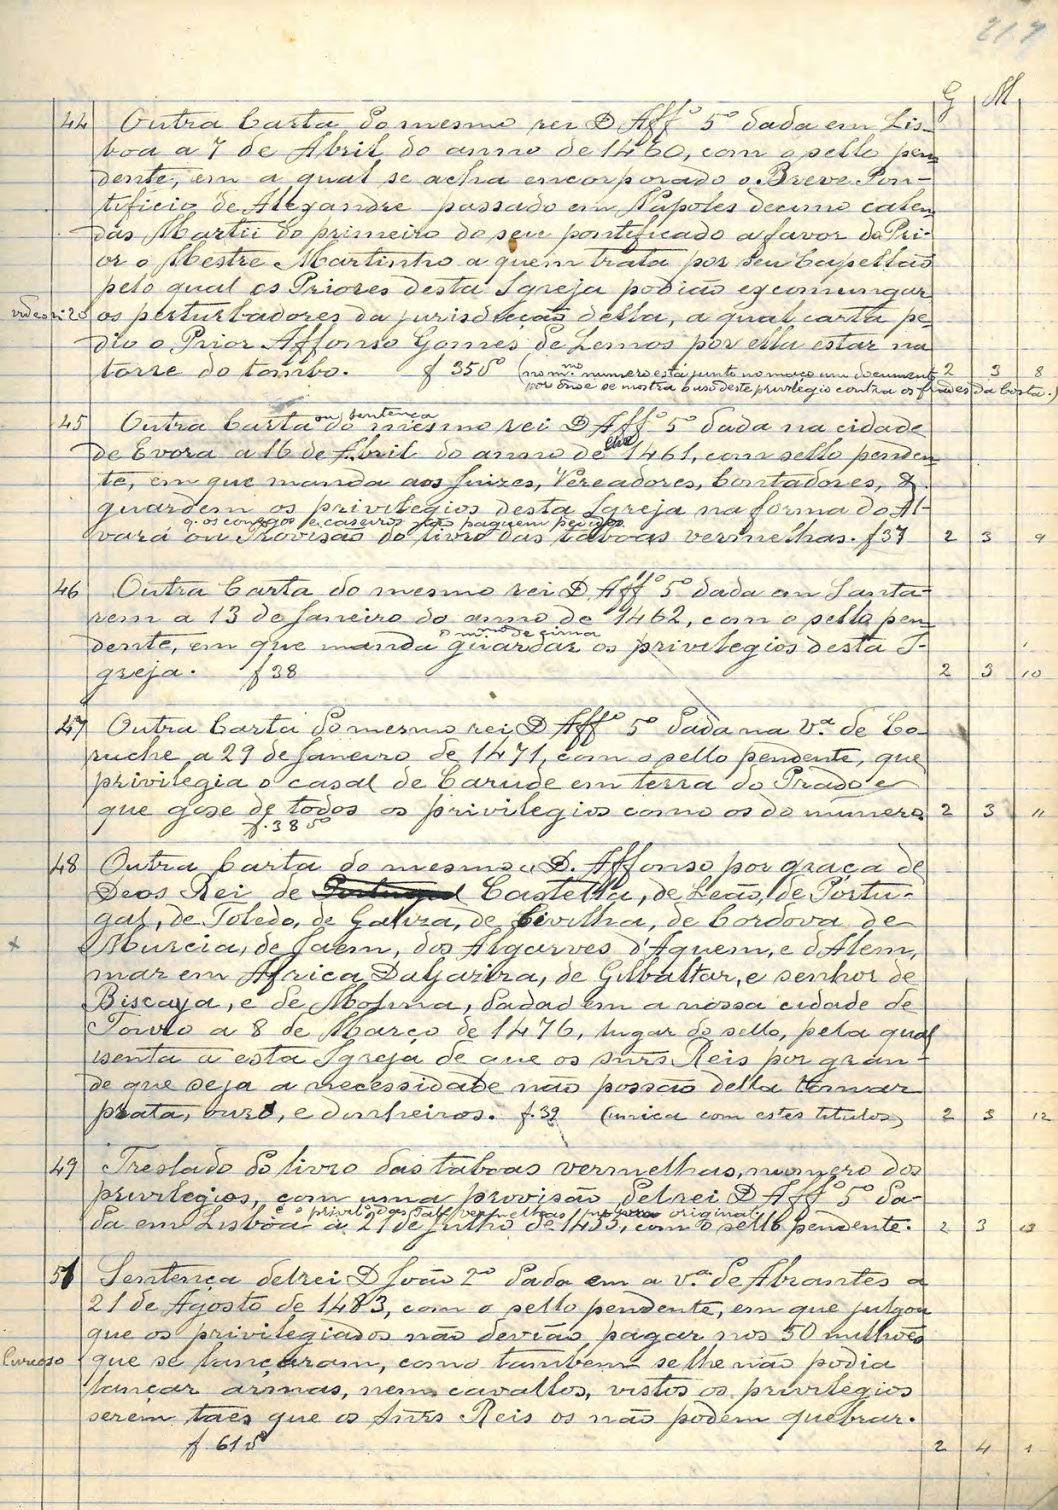 217
G M
44 Outra Carta do mesmo rei D Affº 5º dada em Lis-
boa a 7 de Abril do anno de 1460, com o sello pen-
dente, em a qual se acha encorporado o Breve Pon-
tificio de Alexandre passado em Napoles decimo calen-
das Martii do primeiro do seu pontificado a favor do Pri-
or o Mestre Martinho a quem trata por seu Capellão
pelo qual os Priores desta Igreja podião excommungar
os perturbadores da jurisdicção della, a qual carta pe-
dio o Prior Affonso Gomes de Lemos por ella estar na
torre do tombo. f 35 (no mmo numero está junto no maço um documento 2 3 8
por onde se mostra o uso deste privilegio contra os frades da Costa.)
ou sentença
45 Outra Carta do mesmo rei D Affº 5º dada na cidade
de Evora a 16 de Abril do anno de 1461, com sello penden-
te, em que manda aos Juizes, Vereadores, Contadores, &
guardem os privilegios desta Igreja na forma do Al-
q. os conegos e caseiros não paguem pedidos
vará ou Provisão do livro das taboas vermelhas. f 37 2 3 9
46 Outra Carta do mesmo rei D. Affº 5º dada em Santa-
rem a 13 de Janeiro do anno de 1462, com o sello pen-
o mmo de cima
dente, em que manda guardar os privilegios desta I-
greja. f 38 2 3 10
47 Outra Carta do mesmo rei D Affº 5º dada na vª. de Co-
ruche a 29 de Janeiro de 1471, com o sello pendente, que
privilegia o casal de Carude em terra do Prado e
que gose de todos os privilegios como os do numero 2 3 11
f. 38
48 Outra Carta do mesmo D. Affonso por graça de
Deos Rei de Portugal Castella, de Leão, de Portu-
gal, de Toledo, de Galiza, de Sevilha, de Cordova de
x Murcia, de Jaem, dos Algarves d'Aquem, e d'Alem,
mar em Africa Daljazira, de Gibraltar, e senhor de
Biscaya, e de Molina, dada em a nossa cidade de
Touro a 8 de Março de 1476, lugar do sello, pela qual
isenta a esta Igreja de que os snrs Reis por gran-
de que seja a necessidade não possão della tomar
prata, ouro, e dinheiros. f. 39 (unica com estes titulos) 2 3 12
49 Treslado do livro das taboas vermelhas, numero dos
privilegios, com uma provisão delrei D Affº 5º da-
da em Lisboa a 21 de Julho de 1455, com o sello pendente. 2 3 13
51 Sentença delrei D João 2º dada em a vª. de Abrantes a
21 de Agosto de 1483, com o sello pendente, em que julgou
que os privilegiados não devião pagar nos 50 milhões
Curioso que se lançaram, como tambem se lhe não podia
lançar armas, nem cavallos, vistos os privilegios
serem taes que os Snrs Reis os não podem quebrar.
f 61 2 4 1